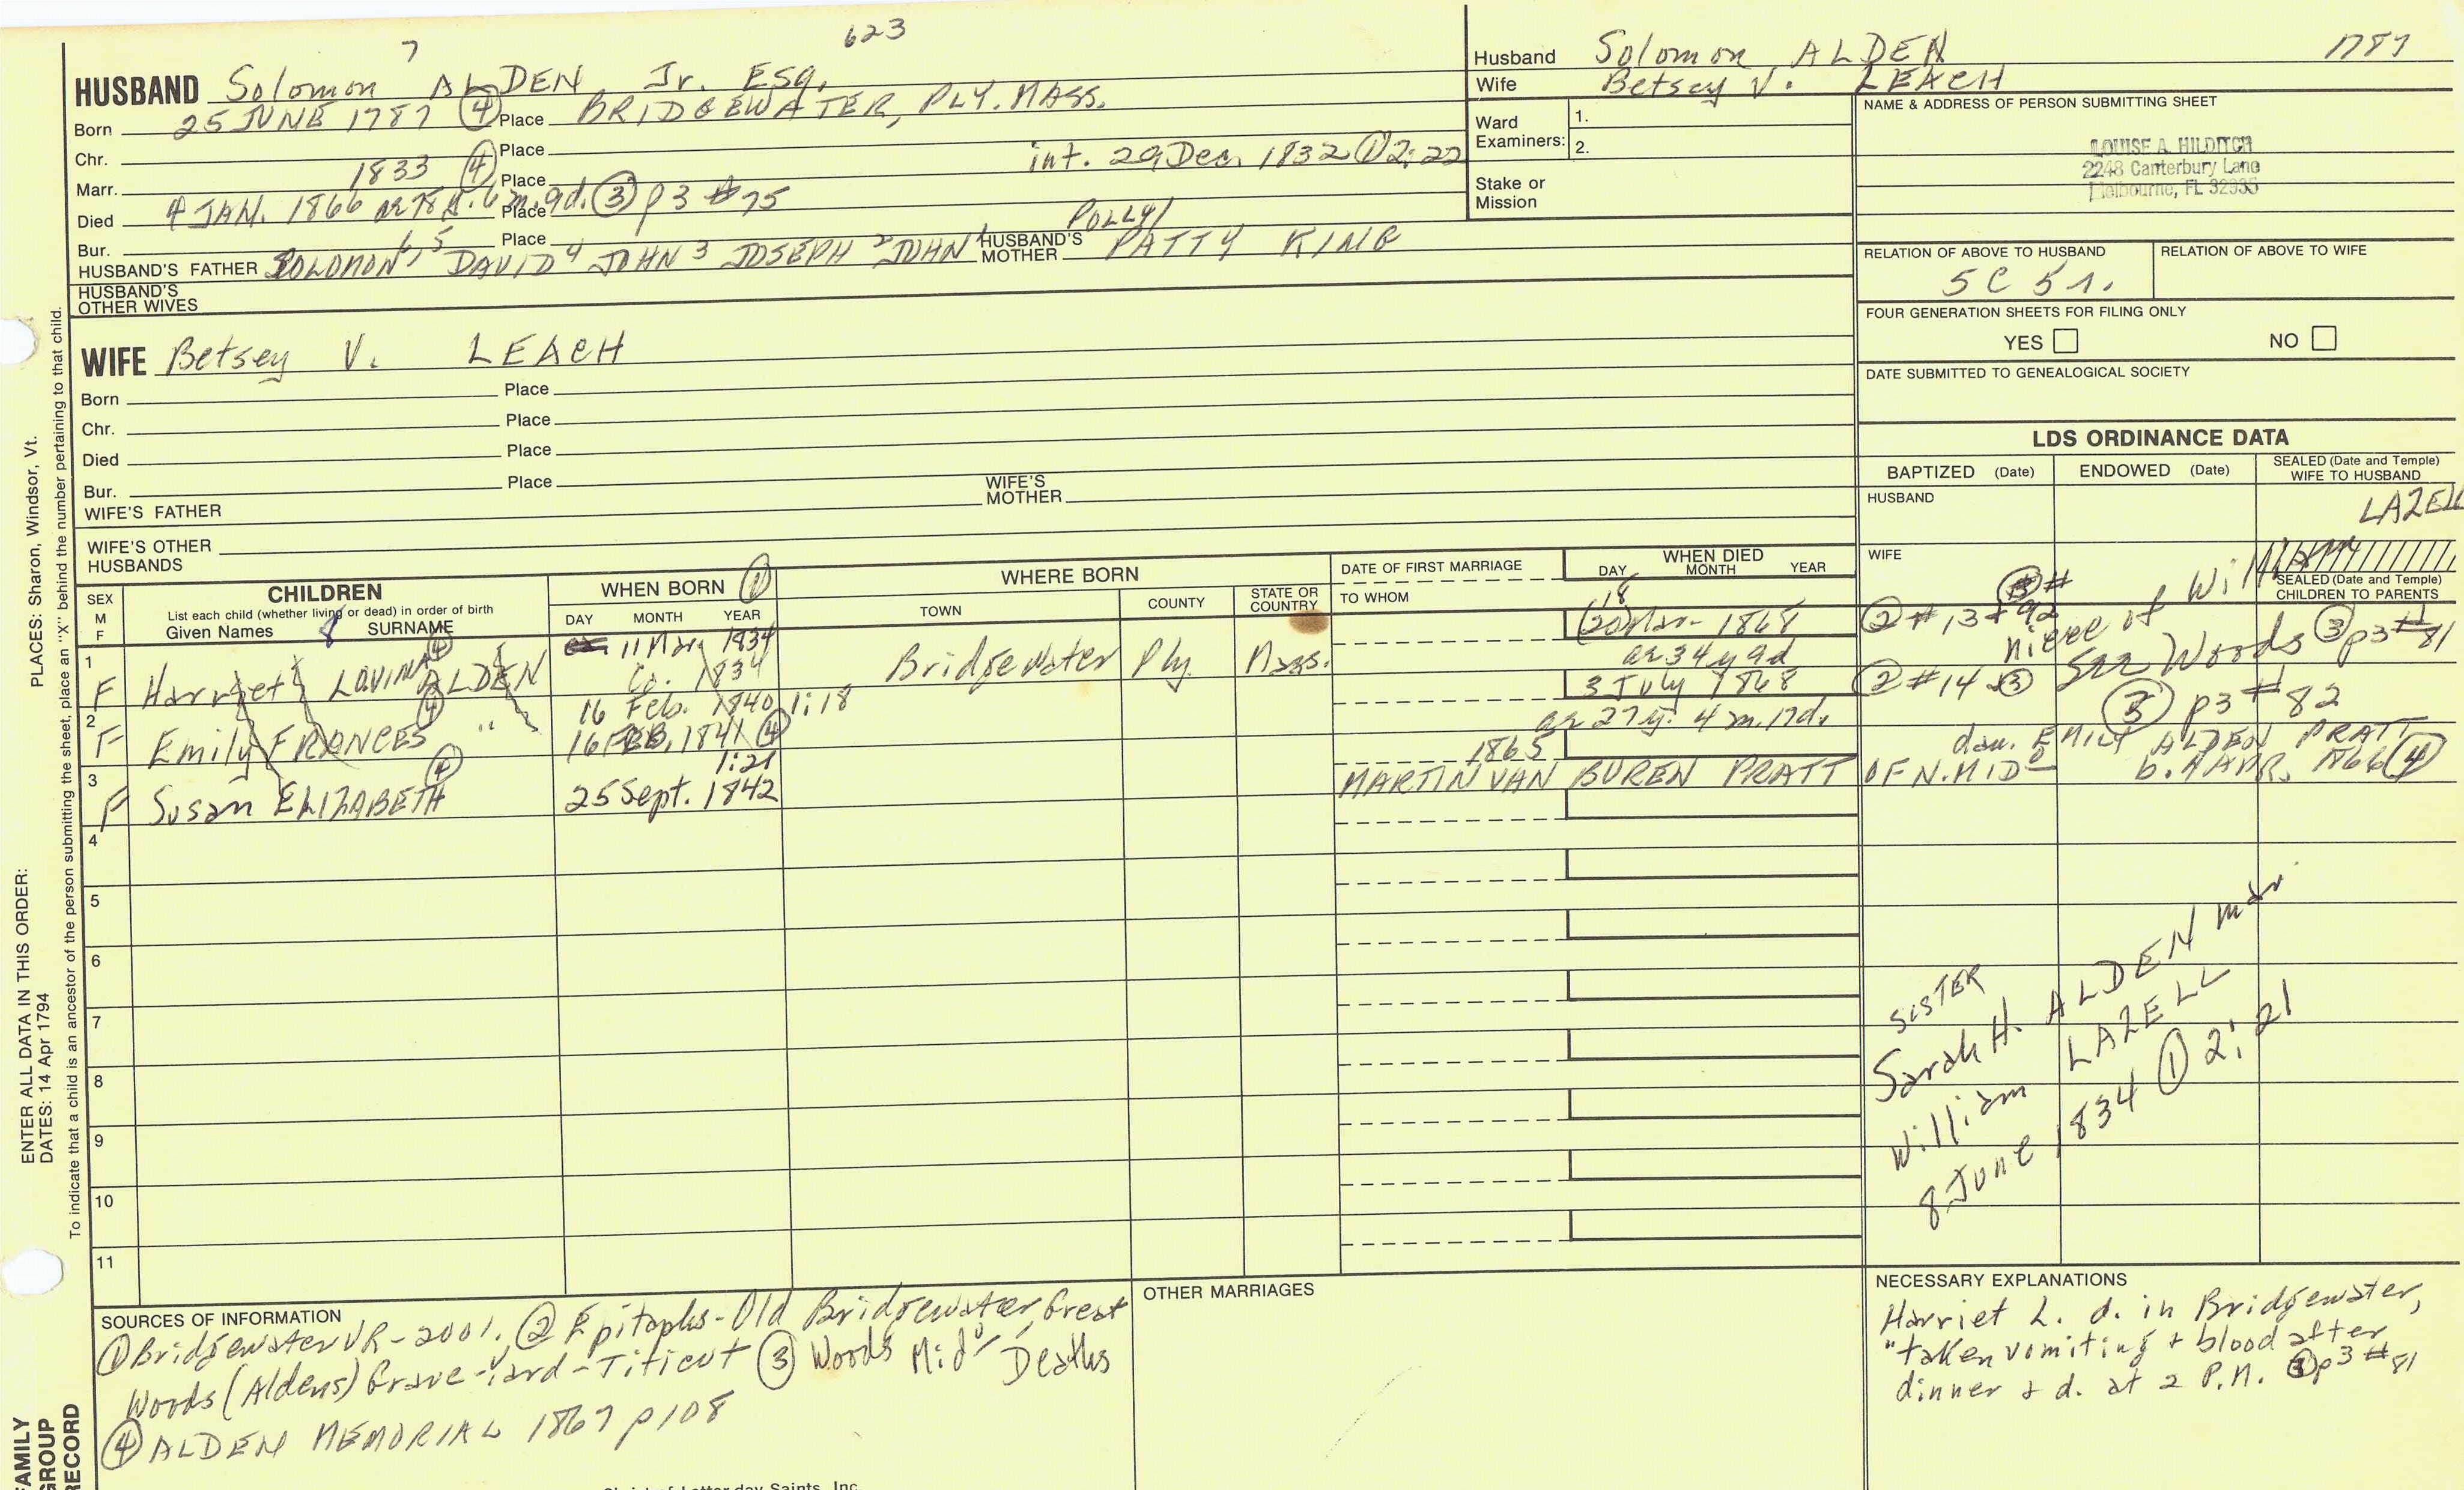 7
623
HUSBAND Solomon ALDEN Jr. ESQ.
Born 25 JUNE 1787 ④ Place BRIDGEWATER, PLY. MASS.
Chr. Place
Marr. 1833 ④ Place int. 29 Dec. 1832 ① 2:22
Died 4 JAN. 1866 ae 78 y. 6 m. 9d. ③ p3 #75 Place
Bur. Place
HUSBAND'S FATHER SOLOMON 6, 5 DAVID 4 JOHN 3 JOSEPH 2 JOHN 1 HUSBAND'S MOTHER POLLY/ PATTY KING
HUSBAND'S OTHER WIVES
WIFE Betsey V. LEACH
Born Place
Chr. Place
Died Place
Bur. Place
WIFE'S FATHER WIFE'S MOTHER
WIFE'S OTHER HUSBANDS
Husband Solomon ALDEN 1787
Wife Betsey V. LEACH
Ward Examiners: 1.
2.
Stake or Mission
NAME & ADDRESS OF PERSON SUBMITTING SHEET
LOUISE A. HILDITCH
2248 Canterbury Lane
Melbourne, FL 32935
RELATION OF ABOVE TO HUSBAND
5C 5r.
RELATION OF ABOVE TO WIFE
FOUR GENERATION SHEETS FOR FILING ONLY
YES NO
DATE SUBMITTED TO GENEALOGICAL SOCIETY
LDS ORDINANCE DATA
BAPTIZED (Date) ENDOWED (Date) SEALED (Date and Temple) WIFE TO HUSBAND
HUSBAND
LAZELL
WIFE
SEALED (Date and Temple)
CHILDREN TO PARENTS
SEX M F
CHILDREN
List each child (whether living or dead) in order of birth
Given Names 8 SURNAME
WHEN BORN ①
DAY MONTH YEAR
WHERE BORN
TOWN COUNTY STATE OR COUNTRY
DATE OF FIRST MARRIAGE
TO WHOM
WHEN DIED
DAY MONTH YEAR
1 F Harriet LOVINA ④ ALDEN 11 May 1834
Ca. 1834
Bridgewater Ply. Mass.
18
(20) Mar. 1868
ae 34 y 9d
② #13 + 92
niece of William
See Woods ③ p3 #81
2 F Emily FRANCES ④ " 16 Feb. 1840 1:18
16 FEB. 1841 ④
3 July 1868
ae 27 y. 4 m. 17 d.
② #14 ③
③ p3 #82
3 F Susan ELIZABETH ④ 1:21
25 Sept. 1842
1865
MARTIN VAN BUREN PRATT OF N. MID
dau. EMILY ALDEN PRATT
b. 4 APR. 1866 ④
4
5
6
7
8
9
10
11
SISTER
Sarah H. ALDEN mar.
William LAZELL
8 June 1834 ① 2:21
SOURCES OF INFORMATION
① Bridgewater VR - 2001. ② Epitaphs - Old Bridgewater, Great
Woods (Aldens) Grave-Yard - Titicut ③ Woods Mid Deaths
④ ALDEN MEMORIAL 1867 p108
OTHER MARRIAGES
NECESSARY EXPLANATIONS
Harriet L. d. in Bridgewater,
"taken vomiting + blood after
dinner & d. at 2 P.M. ③ p3 #81
ENTER ALL DATA IN THIS ORDER:
PLACES: Sharon, Windsor, Vt.
DATES: 14 Apr 1794
To indicate that a child is an ancestor of the person submitting the sheet, place an "X" behind the number pertaining to that child.
FAMILY
GROUP
RECORD